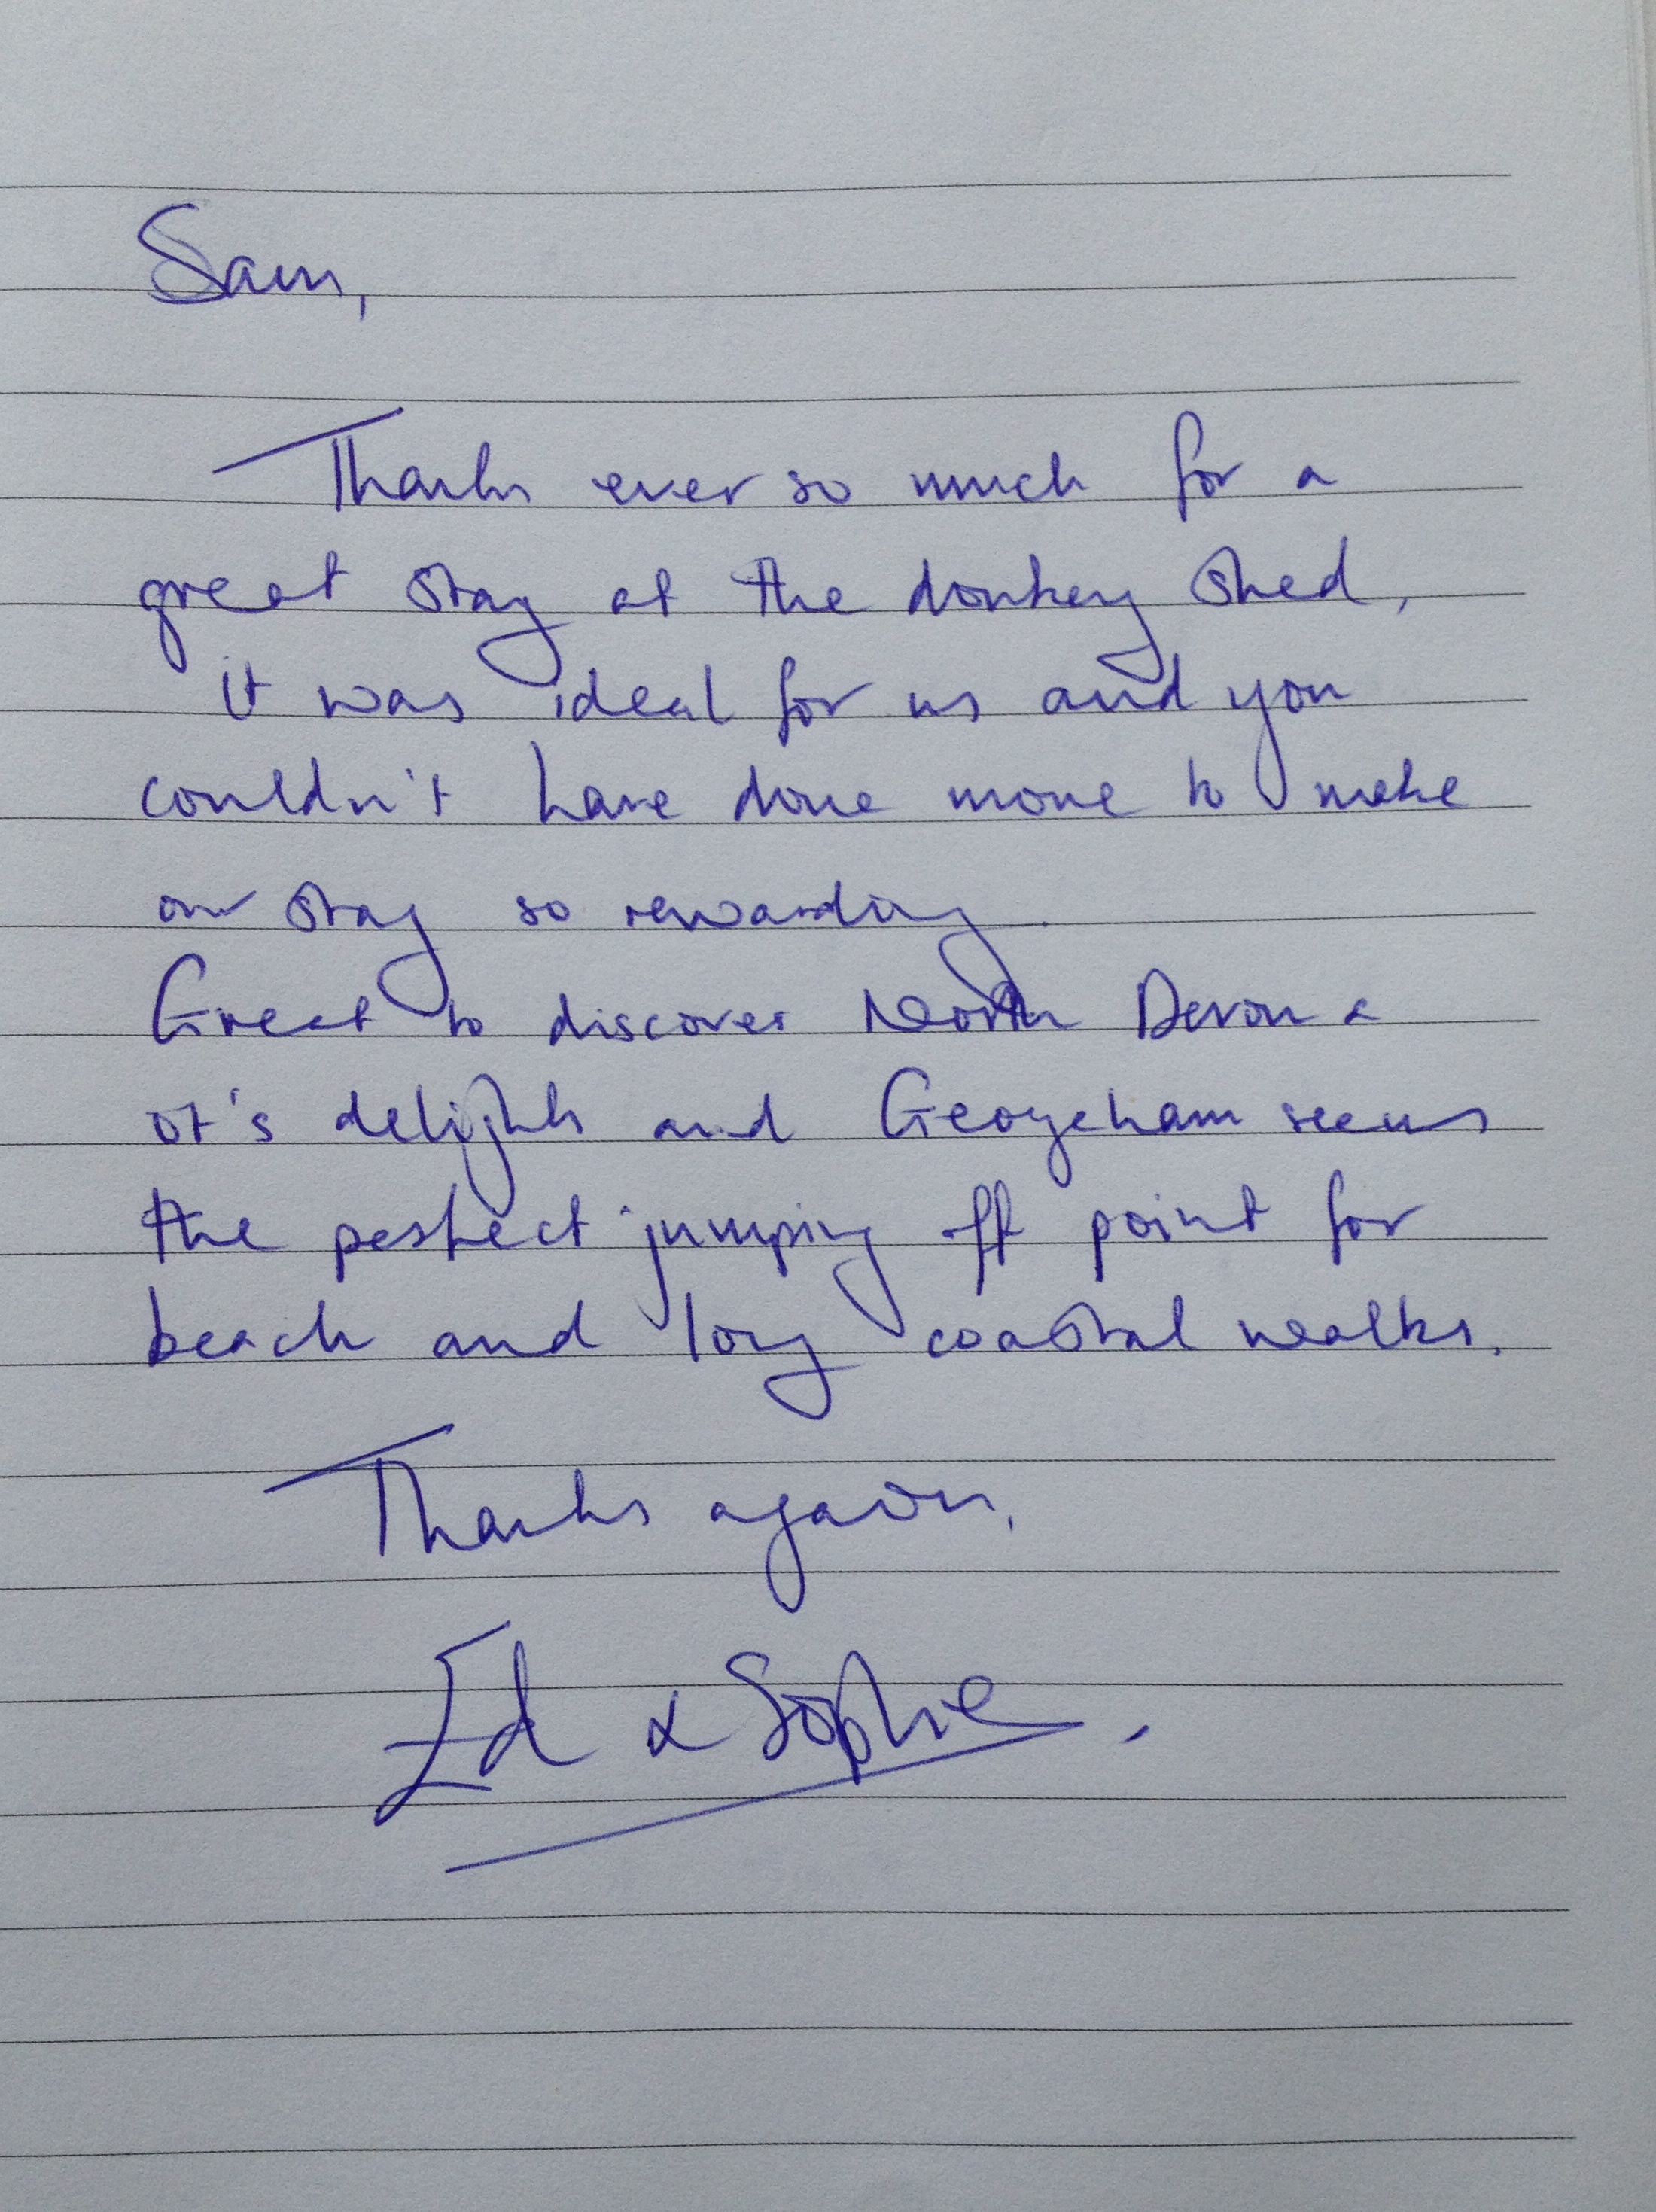 Sam,
Thanks ever so much for a
great stay at the donkey shed,
it was ideal for us and you
couldn't have done more to make
our stay so rewarding.
Great to discover North Devon &
it's delights and Georgeham seems
the perfect jumping off point for
beach and long coastal walks.
Thanks again,
Ed & Sophie.